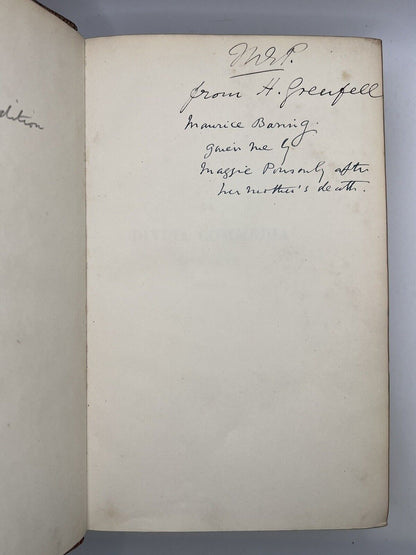 edition
M.E.P.
from H. Grenfell
Maurice Baring.
given me by
Maggie Ponsonby after
her mother's death.
DIVINA COMMEDIA